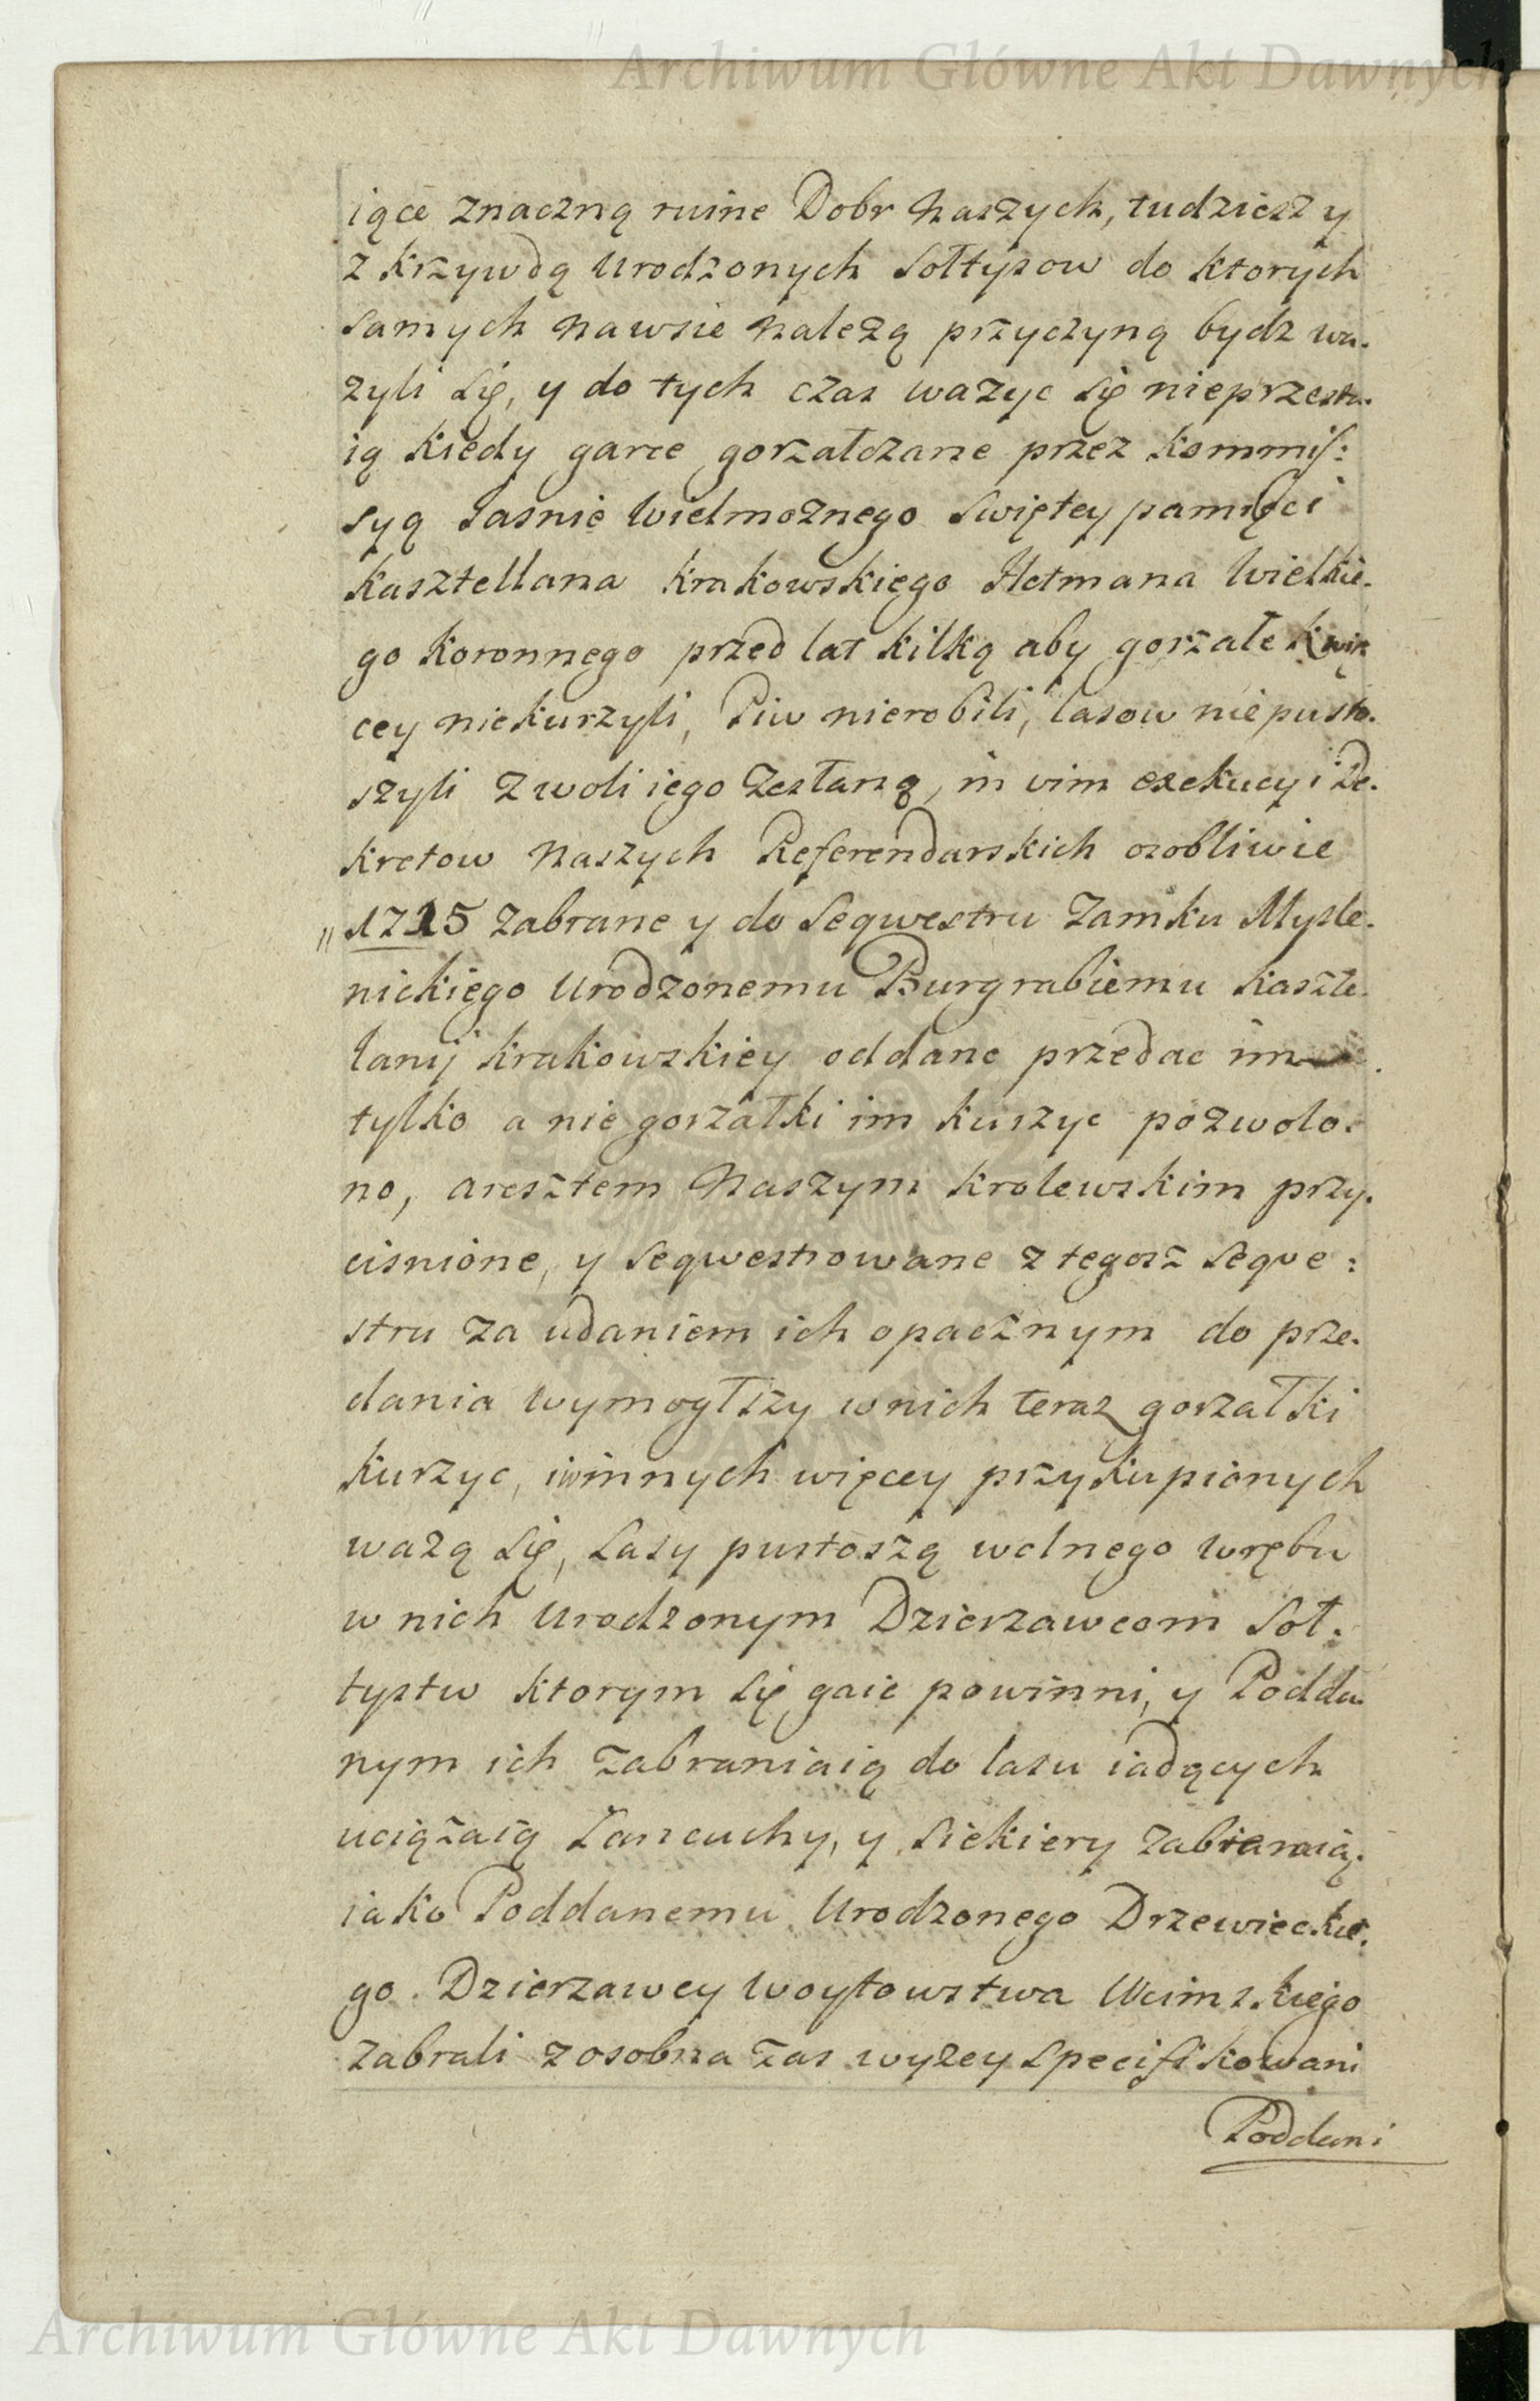 Archiwum Główne Akt Dawnych
iące znaczną ruine Dobr Naszych, tudziesz y
z krzywdą Urodzonych Sołtysow do ktorych
samych Nawsie Nalezą przyczyną bydz wa.
zyli się, y do tych czas wazyc się nieprzesta.
ią kiedy garce gorzałczane przez kommis:
syą Jasnie Wielmoznego Swiętey pamięci
Kasztellana Krakowskiego Hetmana Wielkie.
go Koronnego przed lat kilką aby gorzałek wię
cey niekurzyli, Piw nierobili, lasow niepusto.
szyli z woli iego Zesłaną, in vim exekucyi De.
kretow Naszych Referendarskich osobliwie
" 1715 zabrane y do Seqwestru Zamku Mysle.
nickiego Urodzonemu Burgrabiemu Kaszte.
lanij Krakowskiey oddane przedac im
tylko a nie gorzałki im kurzyc pozwolo.
no, aresztem Naszym Krolewskim przy.
cisnione, y Seqwestrowane z tegosz Seqve:
stru za udaniem ich opacznym do prze.
dania wymogłszy wnich teraz gorzałki
kurzyc, iwinnych więcey przykupionych
wazą się, Lasy pustoszą wolnego wrębu
w nich Urodzonym Dzierzawcom Soł.
tystw ktorym się gaic powinni, y Podda.
nym ich zabraniaią do lasu iadących
uciązaią Łancuchy, y Siekiery zabieraią.
iako Poddanemu Urodzonego Drzewieckie.
go Dzierzawcy Woytowstwa Ucimskiego
zabrali zosobna zas wyzey Specifikowani
Poddani
Archiwum Główne Akt Dawnych